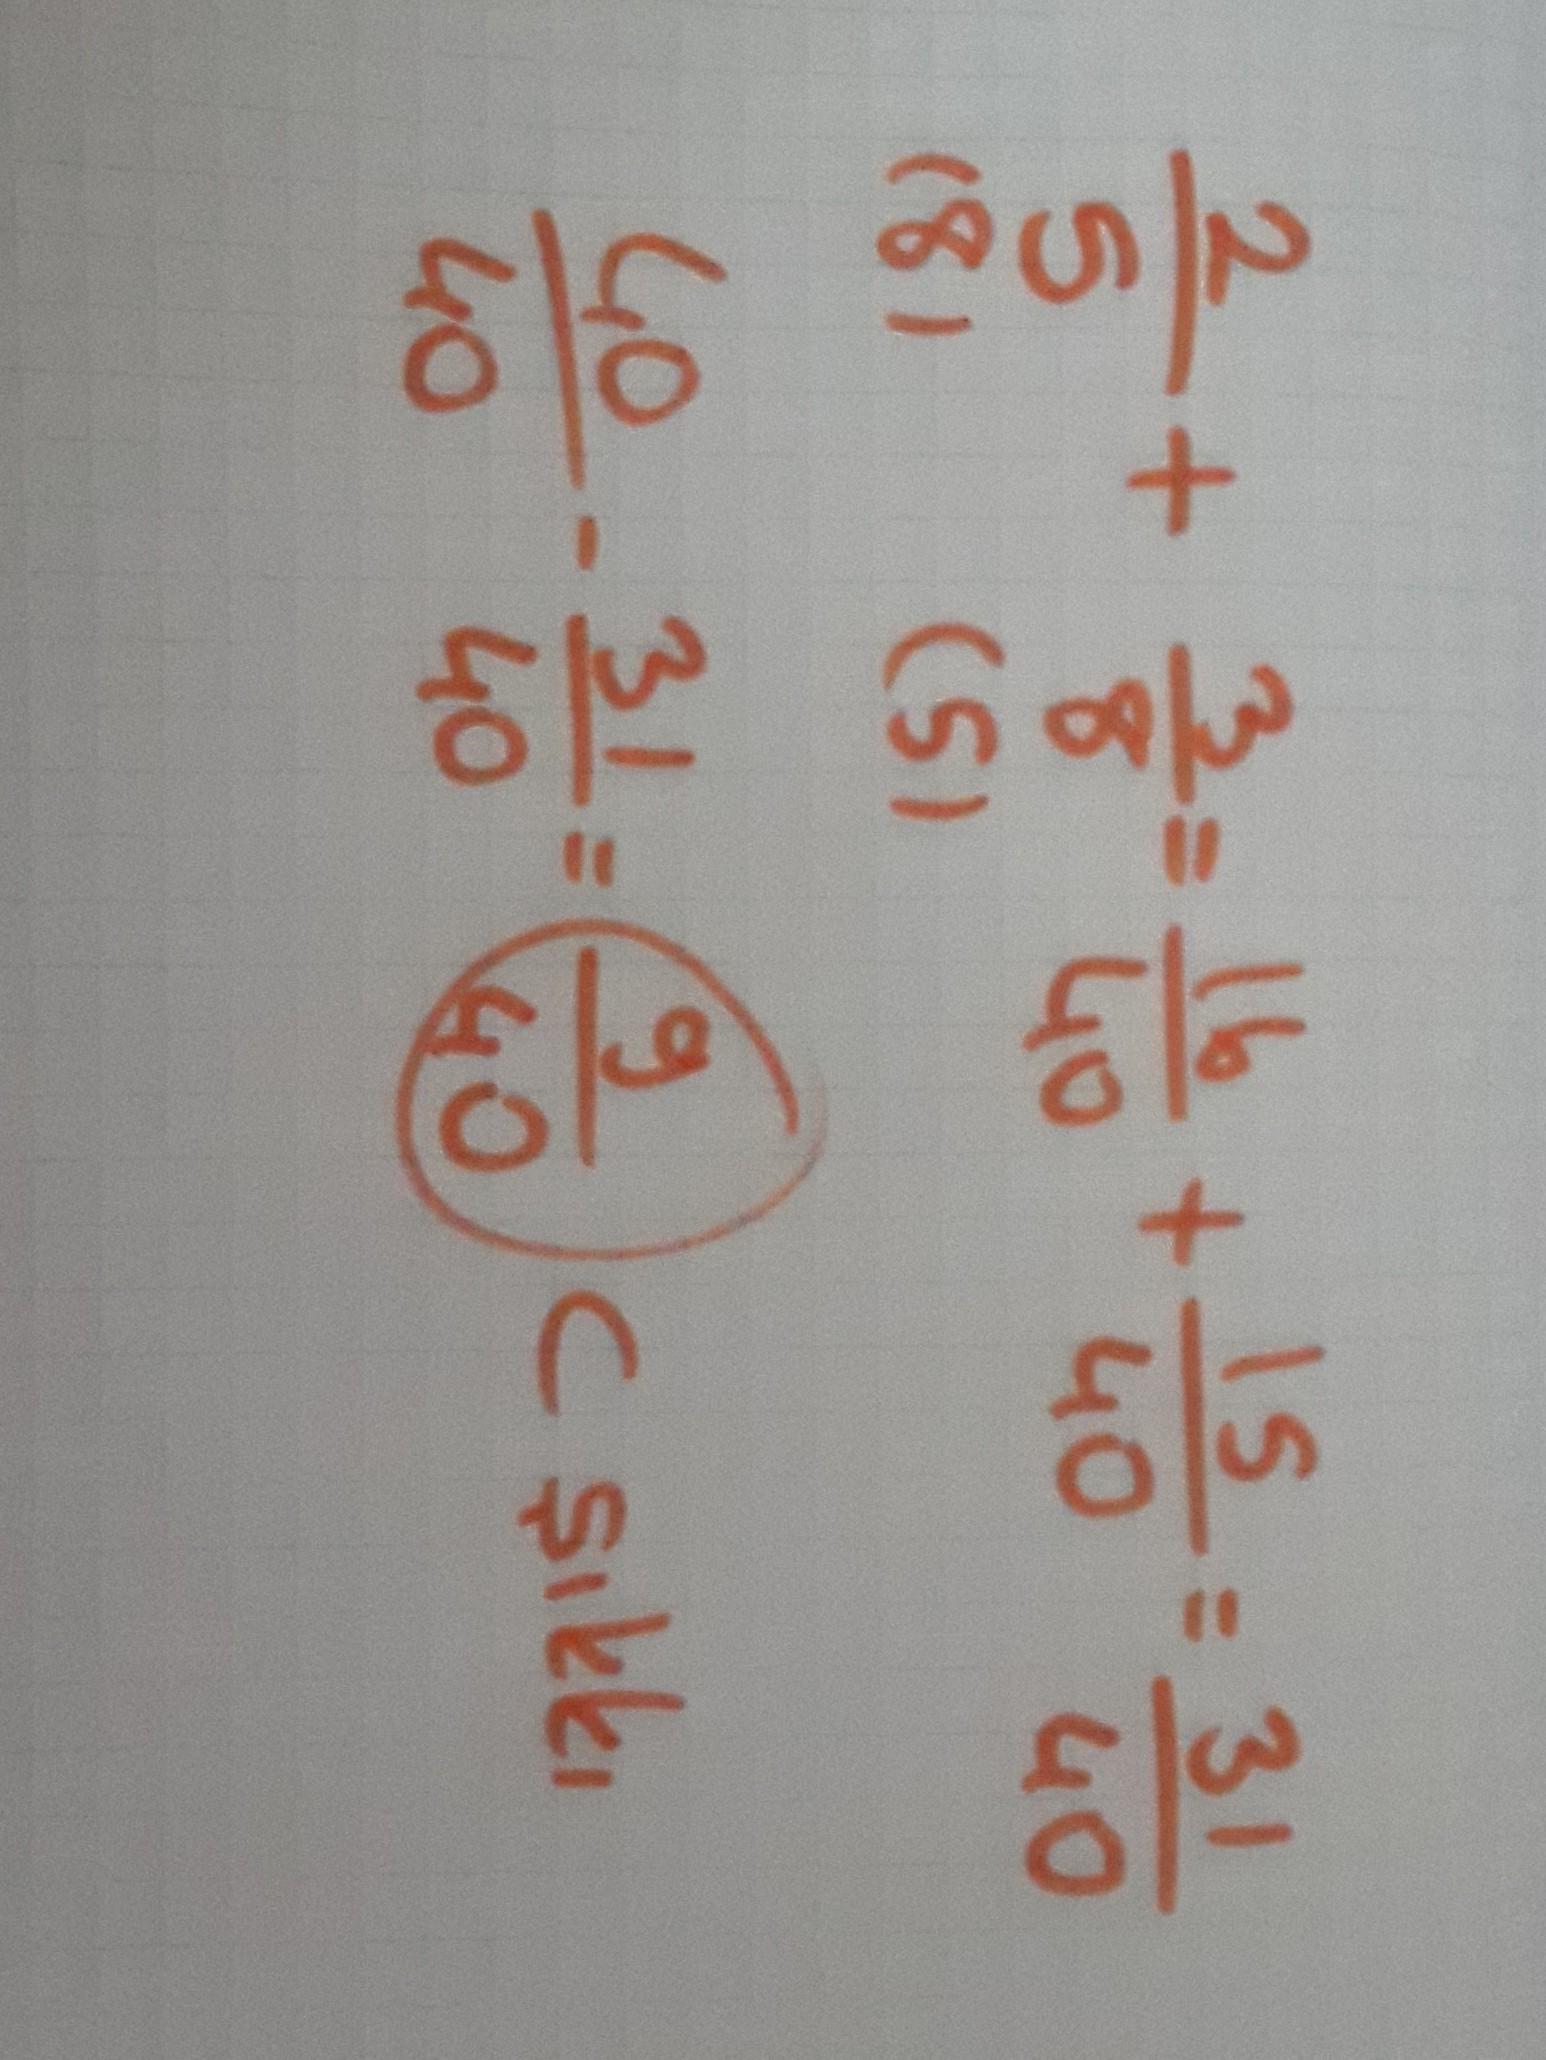 2/5 + 3/8 = 16/40 + 15/40 = 31/40
(8) (5)
40/40 - 31/40 = 9/40 C şıkkı